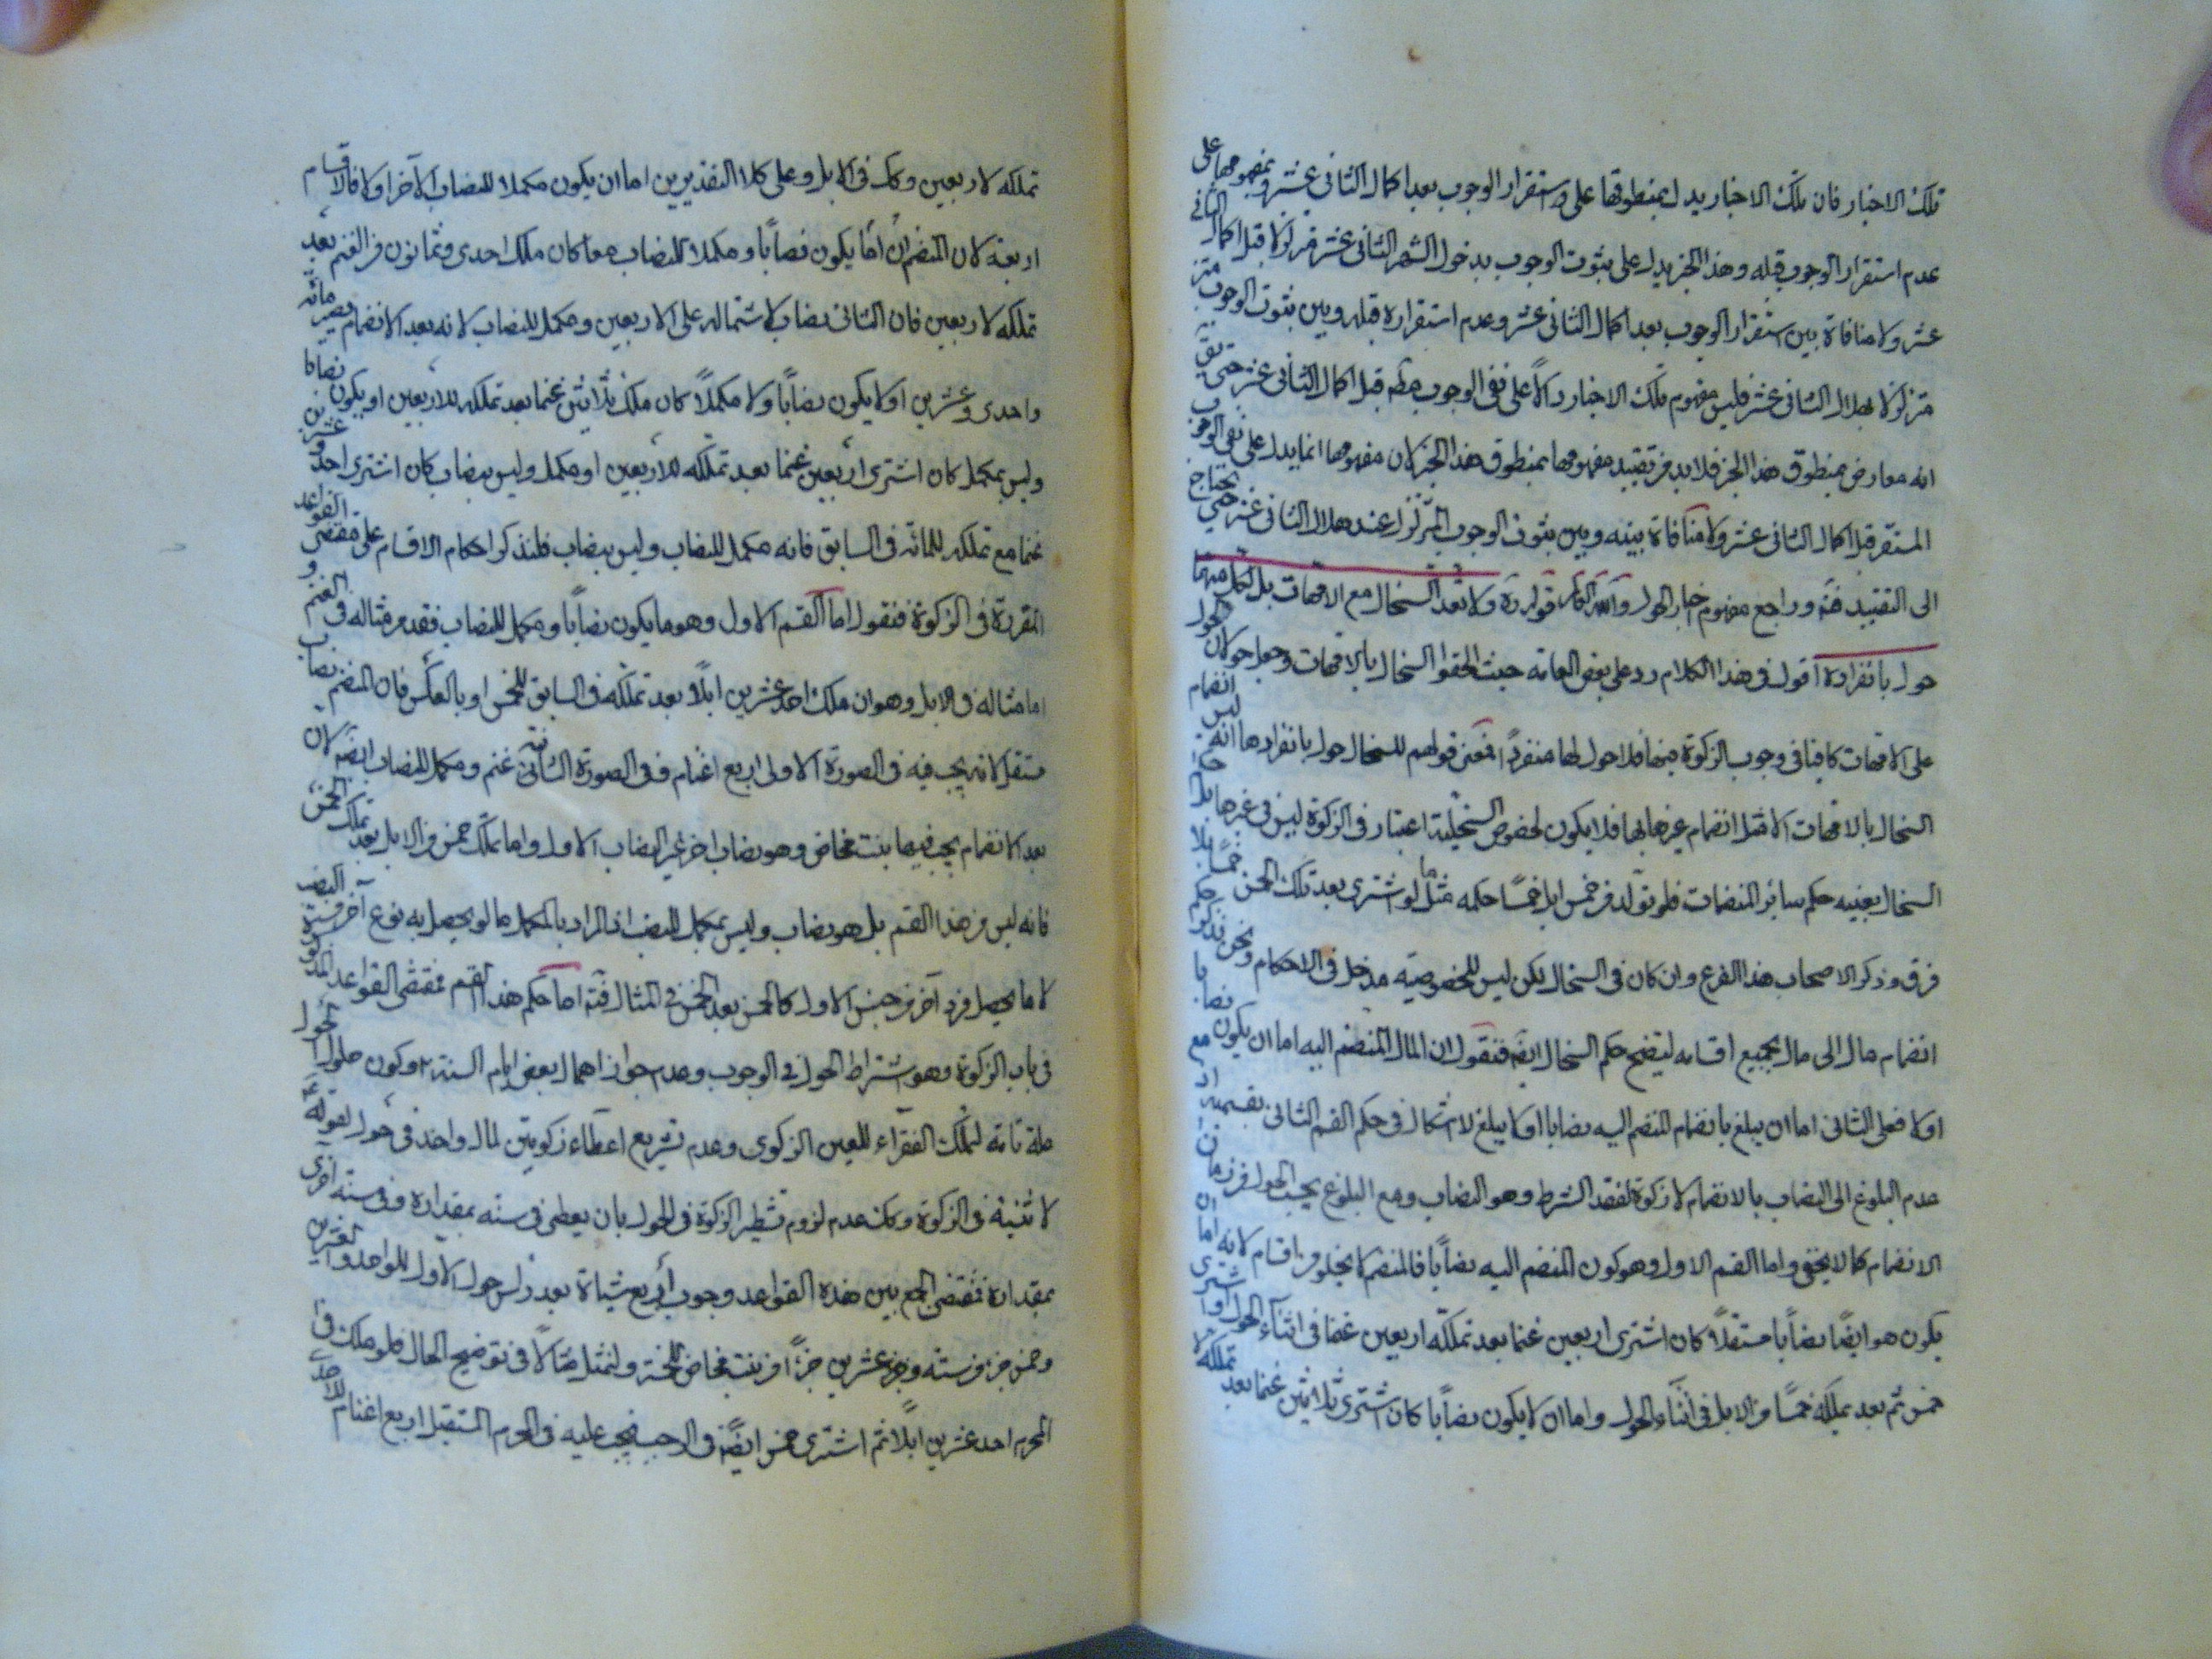 تلك الاخبار فان تلك الاخبار يدل بمنطوقها على استقرار الوجوب بعد اكمال الثانى عشر وبمفهومها على
عدم استقرار الوجوب قبله وهذا الخبر يدل على ثبوت الوجوب بدخول الشهر الثانى عشر متزلزلا قبل اكمال الثانى
عشر ولا منافاة بين استقرار الوجوب بعد اكمال الثانى عشر وعدم استقراره قبله وبين ثبوت الوجوب
متزلزلا بهلال الثانى عشر فليس مفهوم تلك الاخبار دالاً على نفى الوجوب مطم قبل اكمال الثانى عشر حتى يق
انه معارض بمنطوق هذا الخبر فلا بد من تقييد مفهومها بمنطوق هذا الخبر لان مفهومها انما يدل على نفى الوجوب
المستقر قبل اكمال الثانى عشر ولا منافاة بينه وبين ثبوت الوجوب المتزلزل عند هلال الثانى عشر حتى يحتاج
الى التقييد فتم وراجع مفهوم اخبار الحول قوله ره ولا تعد السخال مع الامهات بل لكل منهما
حول بانفراده اقول فى هذا الكلام رد على بعض العامه حيث الحقوا السخال بالامهات وجعلوا حولان الحول
على الامهات كافيا فى وجوب الزكوة فيها فلا حول لها منفردا فمعنى قولهم للسخال حول بانفرادها انه ليس انضمام
السخال بالامهات الا مثل انضمام غيرها بها فلا يكون لخصوص السخلية اعتبار فى الزكوة ليس فى غيرها بل حكم
السخال بعينه حكم سائر المنضمات فلو تولد من خمس ابل خمسا حكمه مثل ما لو اشترى بعد تلك الخمس خمسا بلا
فرق وذكر الاصحاب هذا الفرع وان كان فى السخال لكن ليس للخصوصيه مدخل فى الاحكام ونحن نذكر حكم
انضمام مال الى مال بجميع اقسامه ليتضح حكم السخال ايضه فنقول ان المال المنضم اليه اما ان يكون نصابا
اولا فعلى الثانى اما ان يبلغ بانضمام المنضم اليه نصابا او لا يبلغ لا اشكال فى حكم القسم الثانى بقسميه اذ مع
عدم البلوغ الى النصاب بالانضمام لا زكوة لفقد الشرط وهو النصاب ومع البلوغ يحسب الحول من زمان
الانضمام كما لا يخفى واما القسم الاول وهو كون المنضم اليه نصاباً فالمنضم لا يخلو من اقسام لانه اما ان
يكون هو ايضًا نصاباً مستقلاً كان اشترى اربعين غنما بعد تملكه اربعين غنما فى اثناء الحول او اشترى
خمس ثم بعد تملكه خمسًا من الابل فى اثناء الحول واما ان لا يكون نصاباً كان اشترى ثلاثين غنما بعد تملكه لا
تملكه لاربعين وكك فى الابل وعلى كلا التقديرين اما ان يكون مكملا للنصاب الآخر اولا فالاقسام
اربعة لان المنضم اما ان يكون نصاباً ومكملا للنصاب معا كان ملك احدى وثمانون من الغنم بعد
تملكه لاربعين فان الثانى نصاب لاشتماله على الاربعين ومكمل للنصاب لانه بعد الانضمام يصير مائه
واحدى وعشرين او لا يكون نصاباً ولا مكملاً كان ملك ثلاثين غنما بعد تملكه للاربعين او يكون نصابا
وليس بمكمل كان اشترى اربعين غنما بعد تملكه للاربعين او مكمل وليس بنصاب كان اشترى احد وعشرين
غنما مع تملكه للمائه فى السابق فانه مكمل للنصاب وليس بنصاب فلنذكر احكام الاقسام على مقتضى القواعد
المقررة فى الزكوة فنقول اما القسم الاول وهو ما يكون نصاباً ومكمل للنصاب فقد مر مثاله فى الغنم و
اما مثاله فى الابل وهو ان ملك احد عشرين ابلاً بعد تملكه فى السابق للخمس او بالعكس فان المنضم نصاب
مستقل لانه يجب فيه فى الصورة الاولى اربع اغنام وفى الصورة الثانية غنم ومكمل للنصاب ايضه لان
بعد الانضمام يجب فيها بنت مخاض وهو نصاب اخر غير النصاب الاول واما تملك خمس من الابل بعد تملك الخمس
فانه ليس من هذا القسم بل هو نصاب وليس بمكمل للنصب اذ المراد بالمكمل ما لو يحصل به نوع آخر من النصب
لا ما يحصل فرد آخر من جنس الاول كالخمس بعد الخمس فى المثال فتم اما حكم هذا القسم فمقتضى القواعد المذكورة
فى باب الزكوة وهو اشتراط الحول فى الوجوب وعدم جواز اهمال بعض ايام السنة وكون حلول الحول
علة تامة لتملك الفقراء للعين الزكوى وعدم تشريع اعطاء زكوتين لمال واحد فى حول لقوله ع
لا ثنية فى الزكوة وكك عدم لزوم تشطير الزكوة فى الحول بان يعطى فى سنه بمقداره وفى سنه اخرى
بمقداره فمقتضى الجمع بين هذه القواعد وجوب اربع شياة بعد راس حول الاول للواحد والعشرين
وخمس جزء من سته وعشرين جزءًا من بنت مخاض للخمسة ولنمثل مثالاً فى توضيح الحال فلو ملك فى
المحرم احد عشرين ابلاً ثم اشترى خمس ايضه فى الرجب فيجب عليه فى المحرم المستقبل اربع اغنام للاحد